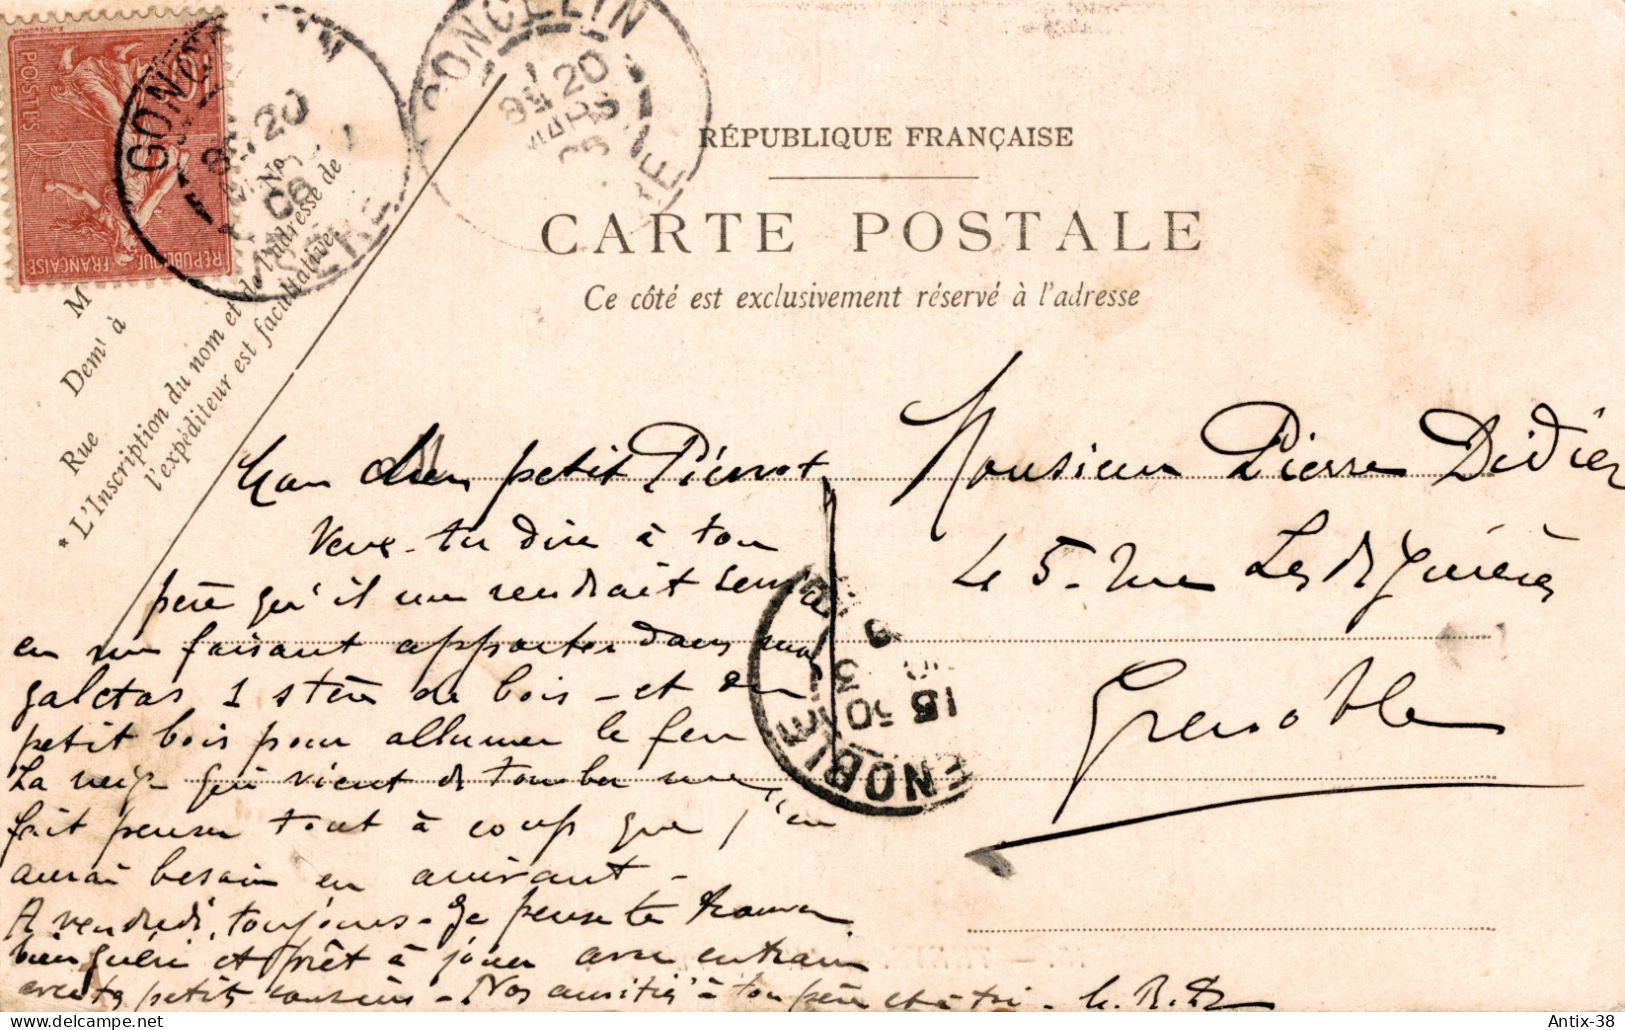 POSTES
RÉPUBLIQUE FRANÇAISE
GONCELIN
20
GONCELIN
20
MARS
ISÈRE
RÉPUBLIQUE FRANÇAISE
CARTE POSTALE
Ce côté est exclusivement réservé à l'adresse
M
Demt à
Rue No
* L'Inscription du nom et de l'adresse de
l'expéditeur est facultative.
Mon cher petit Pierrot
Veux-tu dire à ton
père qu'il me rendrait service
en me faisant apporter dans mon
galetas 1 stère de bois - et du
petit bois pour allumer le feu
La neige qui vient de tomber me
fait penser tout à coup que j'en
aurai besoin en arrivant -
A vendredi, toujours - Je pense te trouver
bien guéri et prêt à jouer avec entrain
avec tes petits cousins - Nos amitiés à ton père et à toi -
Monsieur Pierre Didier
45 - rue Lesdiguières
Grenoble
GRENOBLE
ISÈRE
15 30
Antix-38